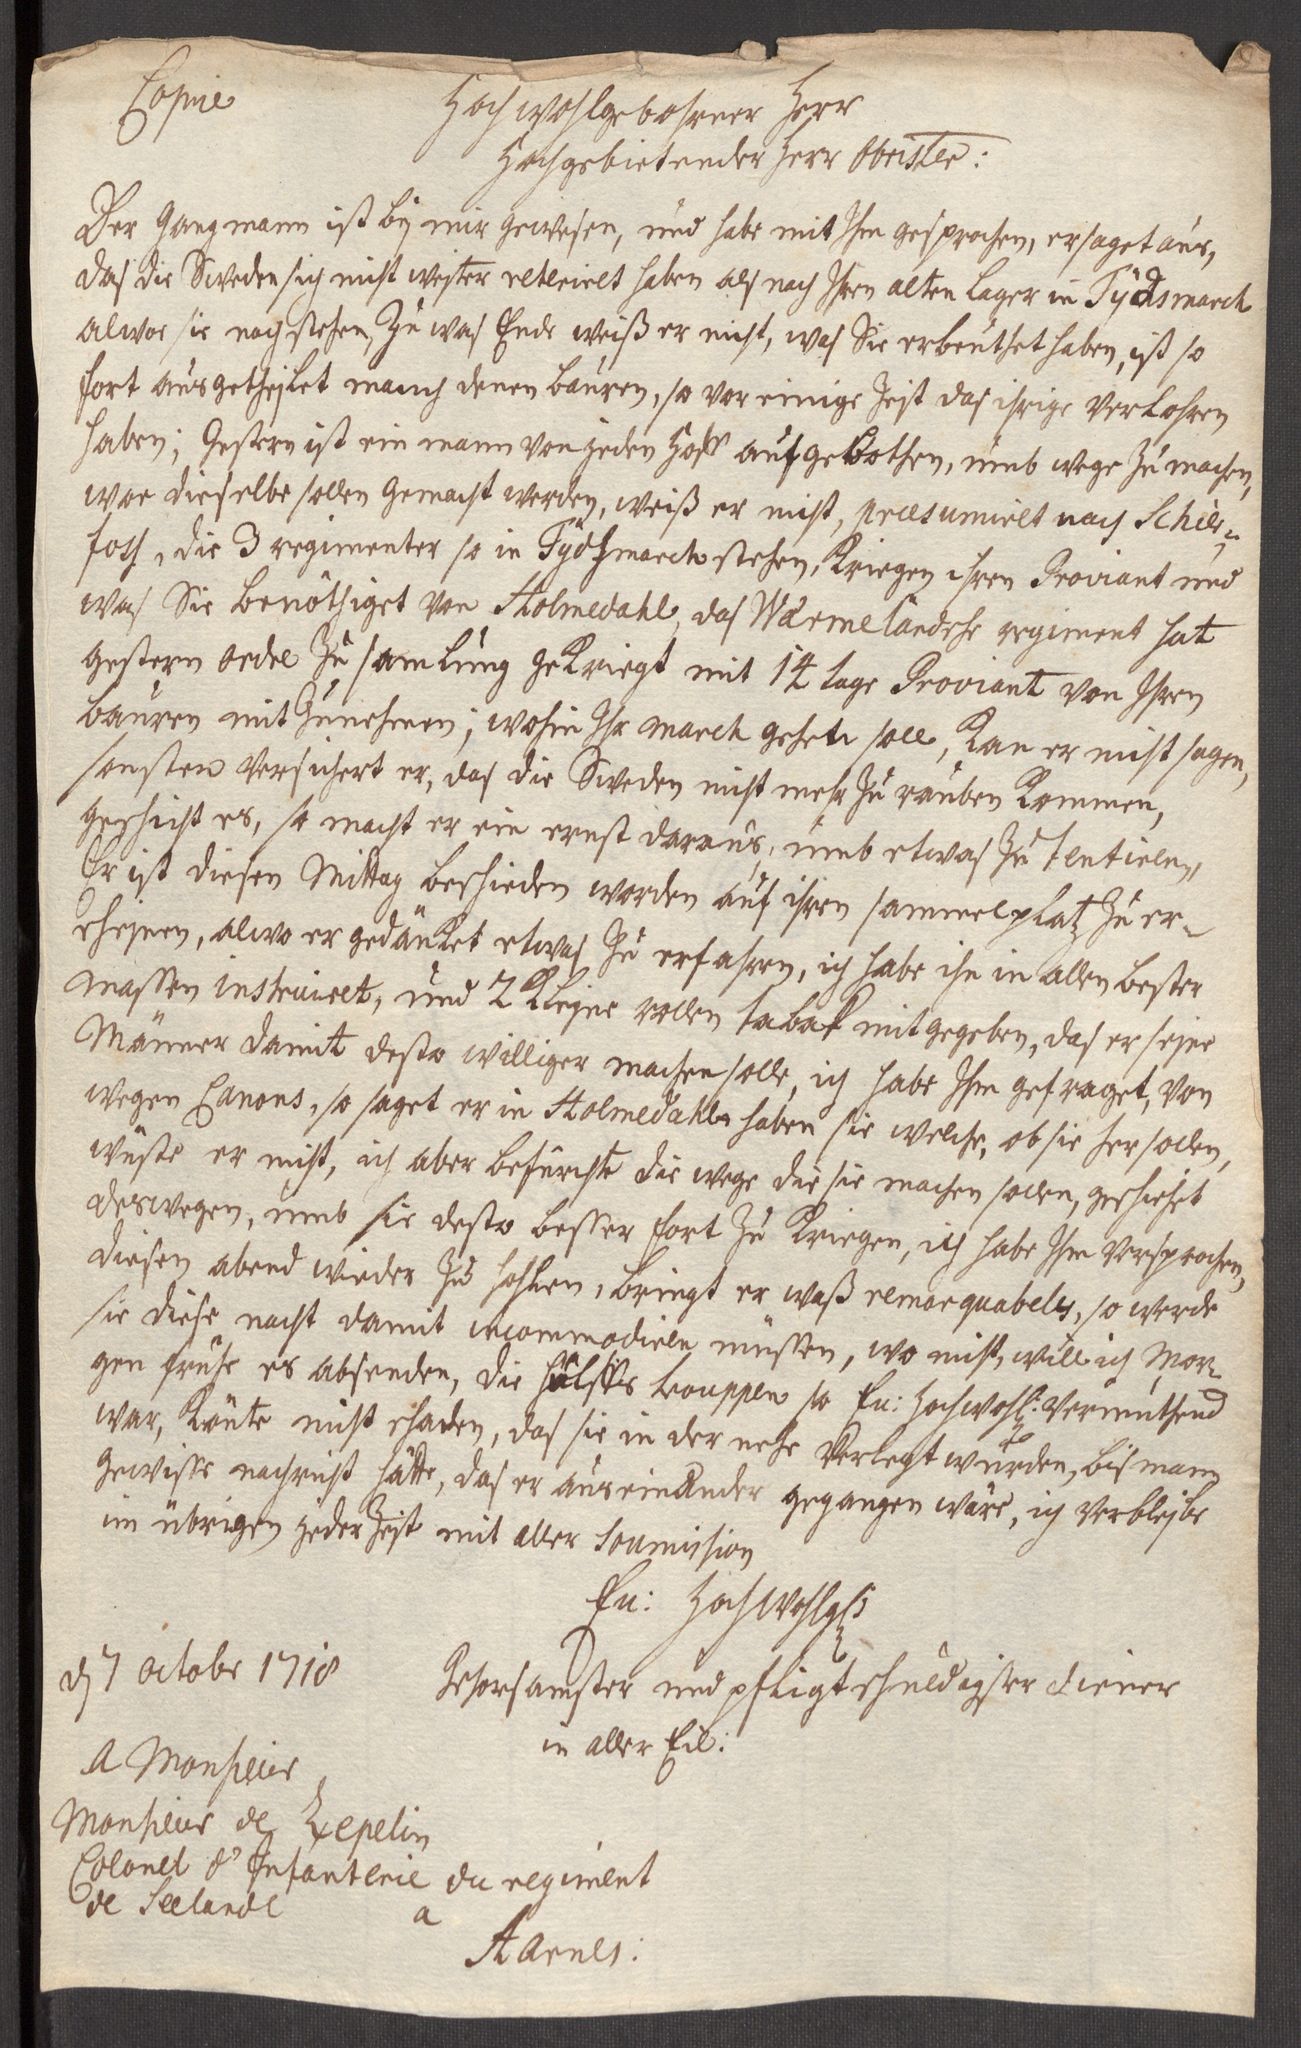 Copie
Hoch wohlgebohrner Herr
Hochgebietender Herr Obrister:
Der Gangmann ist bej mir gewesen, und habe mit Ihm gesprochen, er saget aus,
das die Sweden sich nicht weiter reteriret haben als nach Ihren alten Lager in Tydsmarck
alwor sie noch stehen, zu was Ende weiß er nicht, was Sie erbeuthet haben, ist so
fort ausgetheilet manch denen bauren, so vor einige Zeit das ihrige verlohren
haben; Gestern ist ein mann von jeden Hoff aufgebothen, umb wege zu machen,
wor dieselbe sollen gemacht werden, weiß er nicht, præsumiret nach Schier-
foss, die 3 regimenter so in Tydsmarck stehen, kriegen ihren Proviant und
was Sie benöthiget von Holmedahl, das Wærmelandsche regiment hat
gestern ordre zu samlung gekriegt mit 14 tage Proviant von Ihren
bauren mit zunehmen; wohin Ihr march gehen soll, kan er nicht sagen,
sonsten versichert er, das die Sweden nicht mehr zu rauben kommen,
geschicht es, so macht er ein ernst daraus, umb etwas zu tentieren,
Er ist diesen Mittag beschieden worden auf ihren sammelplatz zu er-
scheinen, alwo er gedäncket etwas zu erfahren, ich habe ihn in allen bester
massen instruiret, und 2 kleine rollen tabak mitgegeben, das er seine
Männer damit desto williger machen solle, ich habe Ihm gefraget, von
wegen Canons, so saget er in Holmedahl haben sie welche, ob sie her sollen,
wuste er nicht, ich aber befürchte die wege die sie machen sollen, geschiehet
deswegen, umb sie desto besser fort zu kriegen, ich habe Ihm versprochen,
diesen abend wieder zu hohlen, bringt er waß remarquabeles, so werde
sie diese nacht damit incommodieren müssen, wo nicht, will ich Mor-
gen frühe es absenden, die hülffs trouppen so Eu: Hochwohlg: vermuthend
war, könte nicht schaden, das sie in der nehe verlegt würden, bis mann
gewisse nachricht hätte, das er auseinander gegangen wäre, ich verbleibe
im übrigen jeder Zeit mit aller soumission
Eu: Hochwohlgb
d 7 octobr 1718
Gehorsamster und pfligt schuldigster diener
in aller Eil:
A Monsieur
Monsieur de Zepelin
Colonel d'Infanterie du regiment
de Seelande
a
Aarnes: